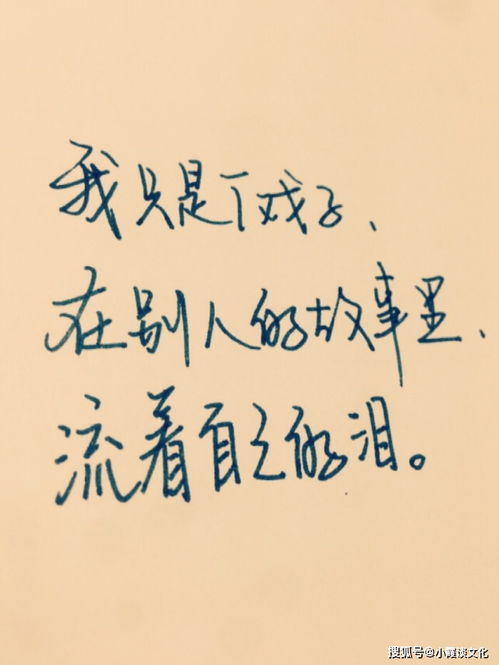 我只是个戏子、
在别人的故事里、
流着自己的泪。
搜狐号@小霞谈文化